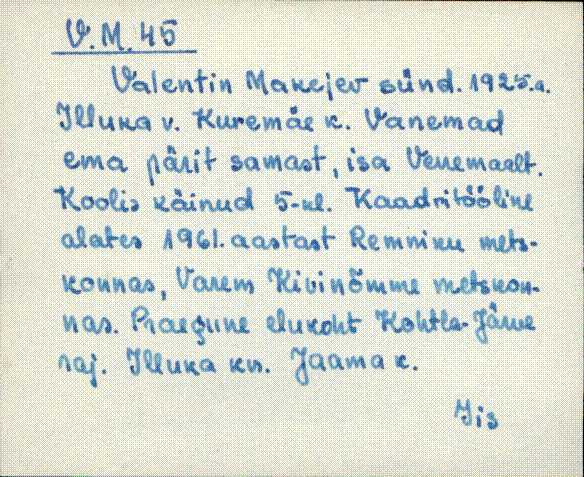 V.M. 45
Valentin Makejev sünd. 1925.a.
Illuka v. Kuremäe k. Vanemad
ema pärit samast, isa Venemaalt.
Koolis käinud 5-kl. Kaadritööline
alates 1961. aastast Remniku mets-
konnas, Varem Kivinõmme metskon-
nas. Praegune elukoht Kohtla-Järve
raj. Illuka kn. Jaama k.
Jis